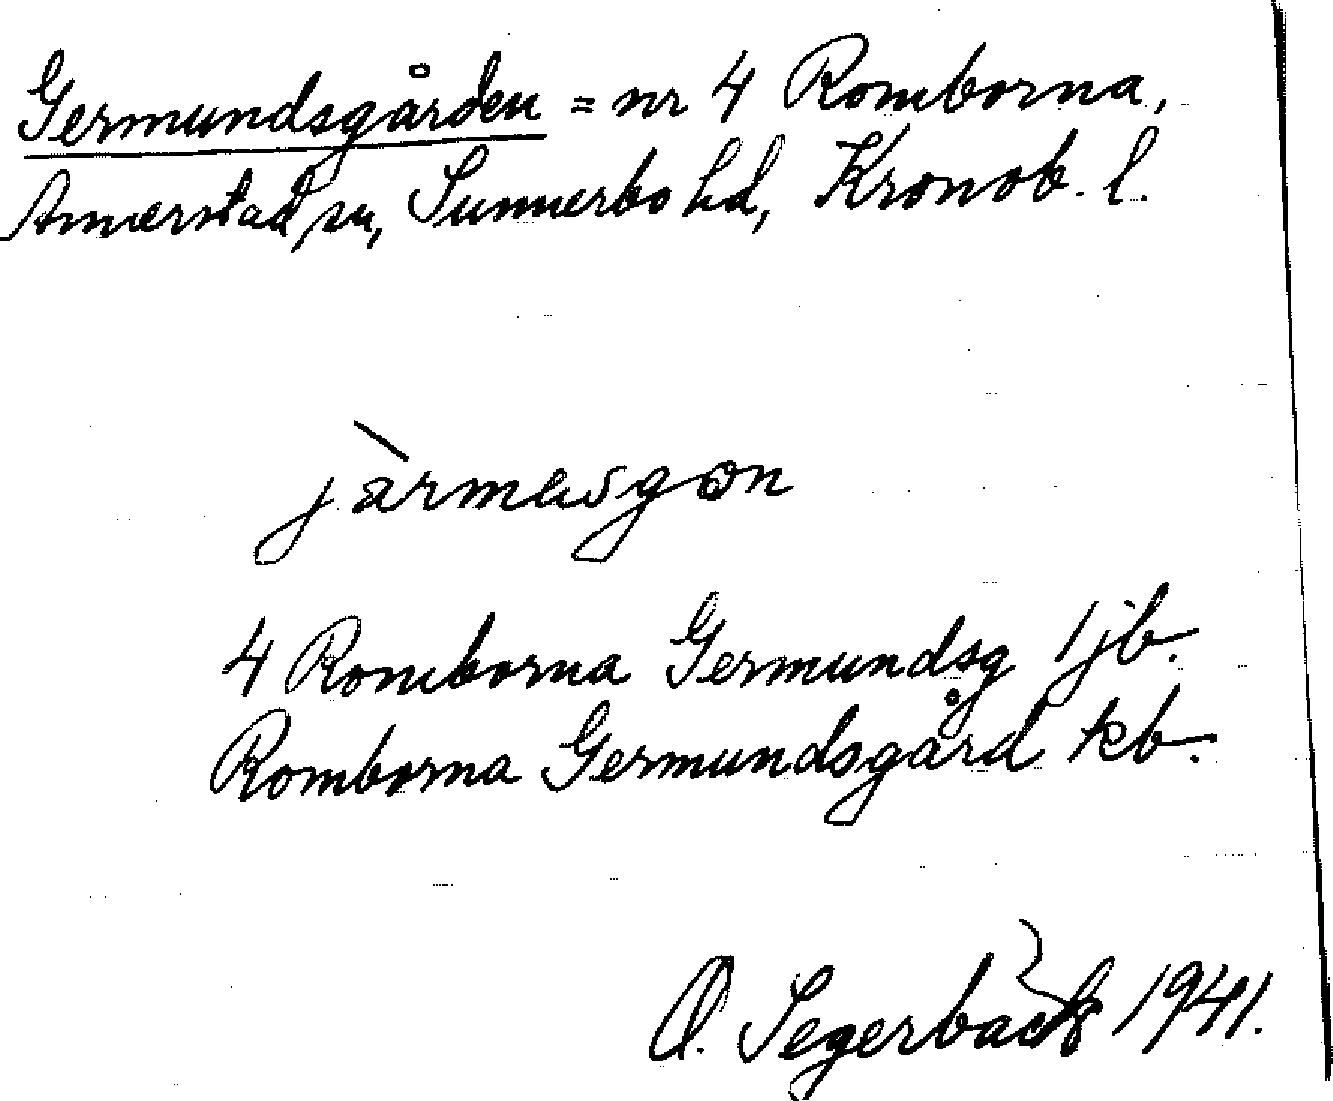 Germundsgården = nr 4 Romborna,
Annerstad sn, Sunnerbo hd, Kronob. l.
jàrmasgɷn
4 Romborna Germundsg 1 jb.
Romborna Germundsgård kb.
O. Segerbäck 1941.